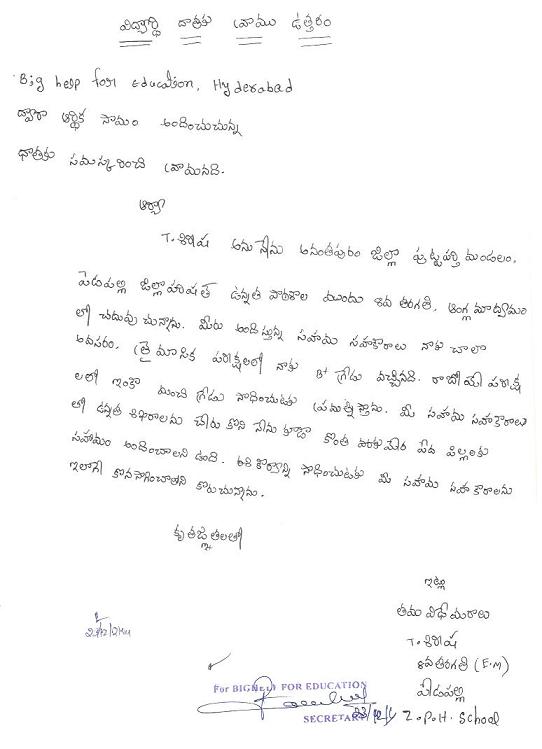 విద్యార్థి దాతకు వ్రాయు ఉత్తరం
Big help for Education, Hyderabad
ద్వారా ఆర్థిక సాయం అందించుచున్న
దాతకు నమస్కరించి వ్రాయునది.
ఆర్యా
T. శిరీష అను నేను అనంతపురం జిల్లా పుట్టపర్తి మండలం,
పెడపల్లి జిల్లా పరిషత్ ఉన్నత పాఠశాల యందు 8వ తరగతి, ఆంగ్ల మాధ్యమం
లో చదువుచున్నాను. మీరు అందిస్తున్న సహాయ సహకారాలు నాకు చాలా
అవసరం. త్రైమాసిక పరీక్షలలో నాకు B+ గ్రేడు వచ్చినది. రాబోయే పరీక్ష
లలో ఇంకా మంచి గ్రేడు సాధించుటకు ప్రయత్నిస్తాను. మీ సహాయ సహకారాలు
తో ఉన్నత శిఖరాలను చేరుకొని నేను కూడా కొంత వరకు పేద పిల్లలకు
సహాయం అందించాలని ఉంది. సాధించుటకు మీ సహాయ సహకారాలను
ఇలాగే కొనసాగించాలని కోరుచున్నాను.
కృతజ్ఞతలతో
ఇట్లు
తమ విధేయురాలు
T. శిరీష
8వ తరగతి (E.M)
పెడపల్లి
Z.P.H. School
For BIGHELP FOR EDUCATION
SECRETARY